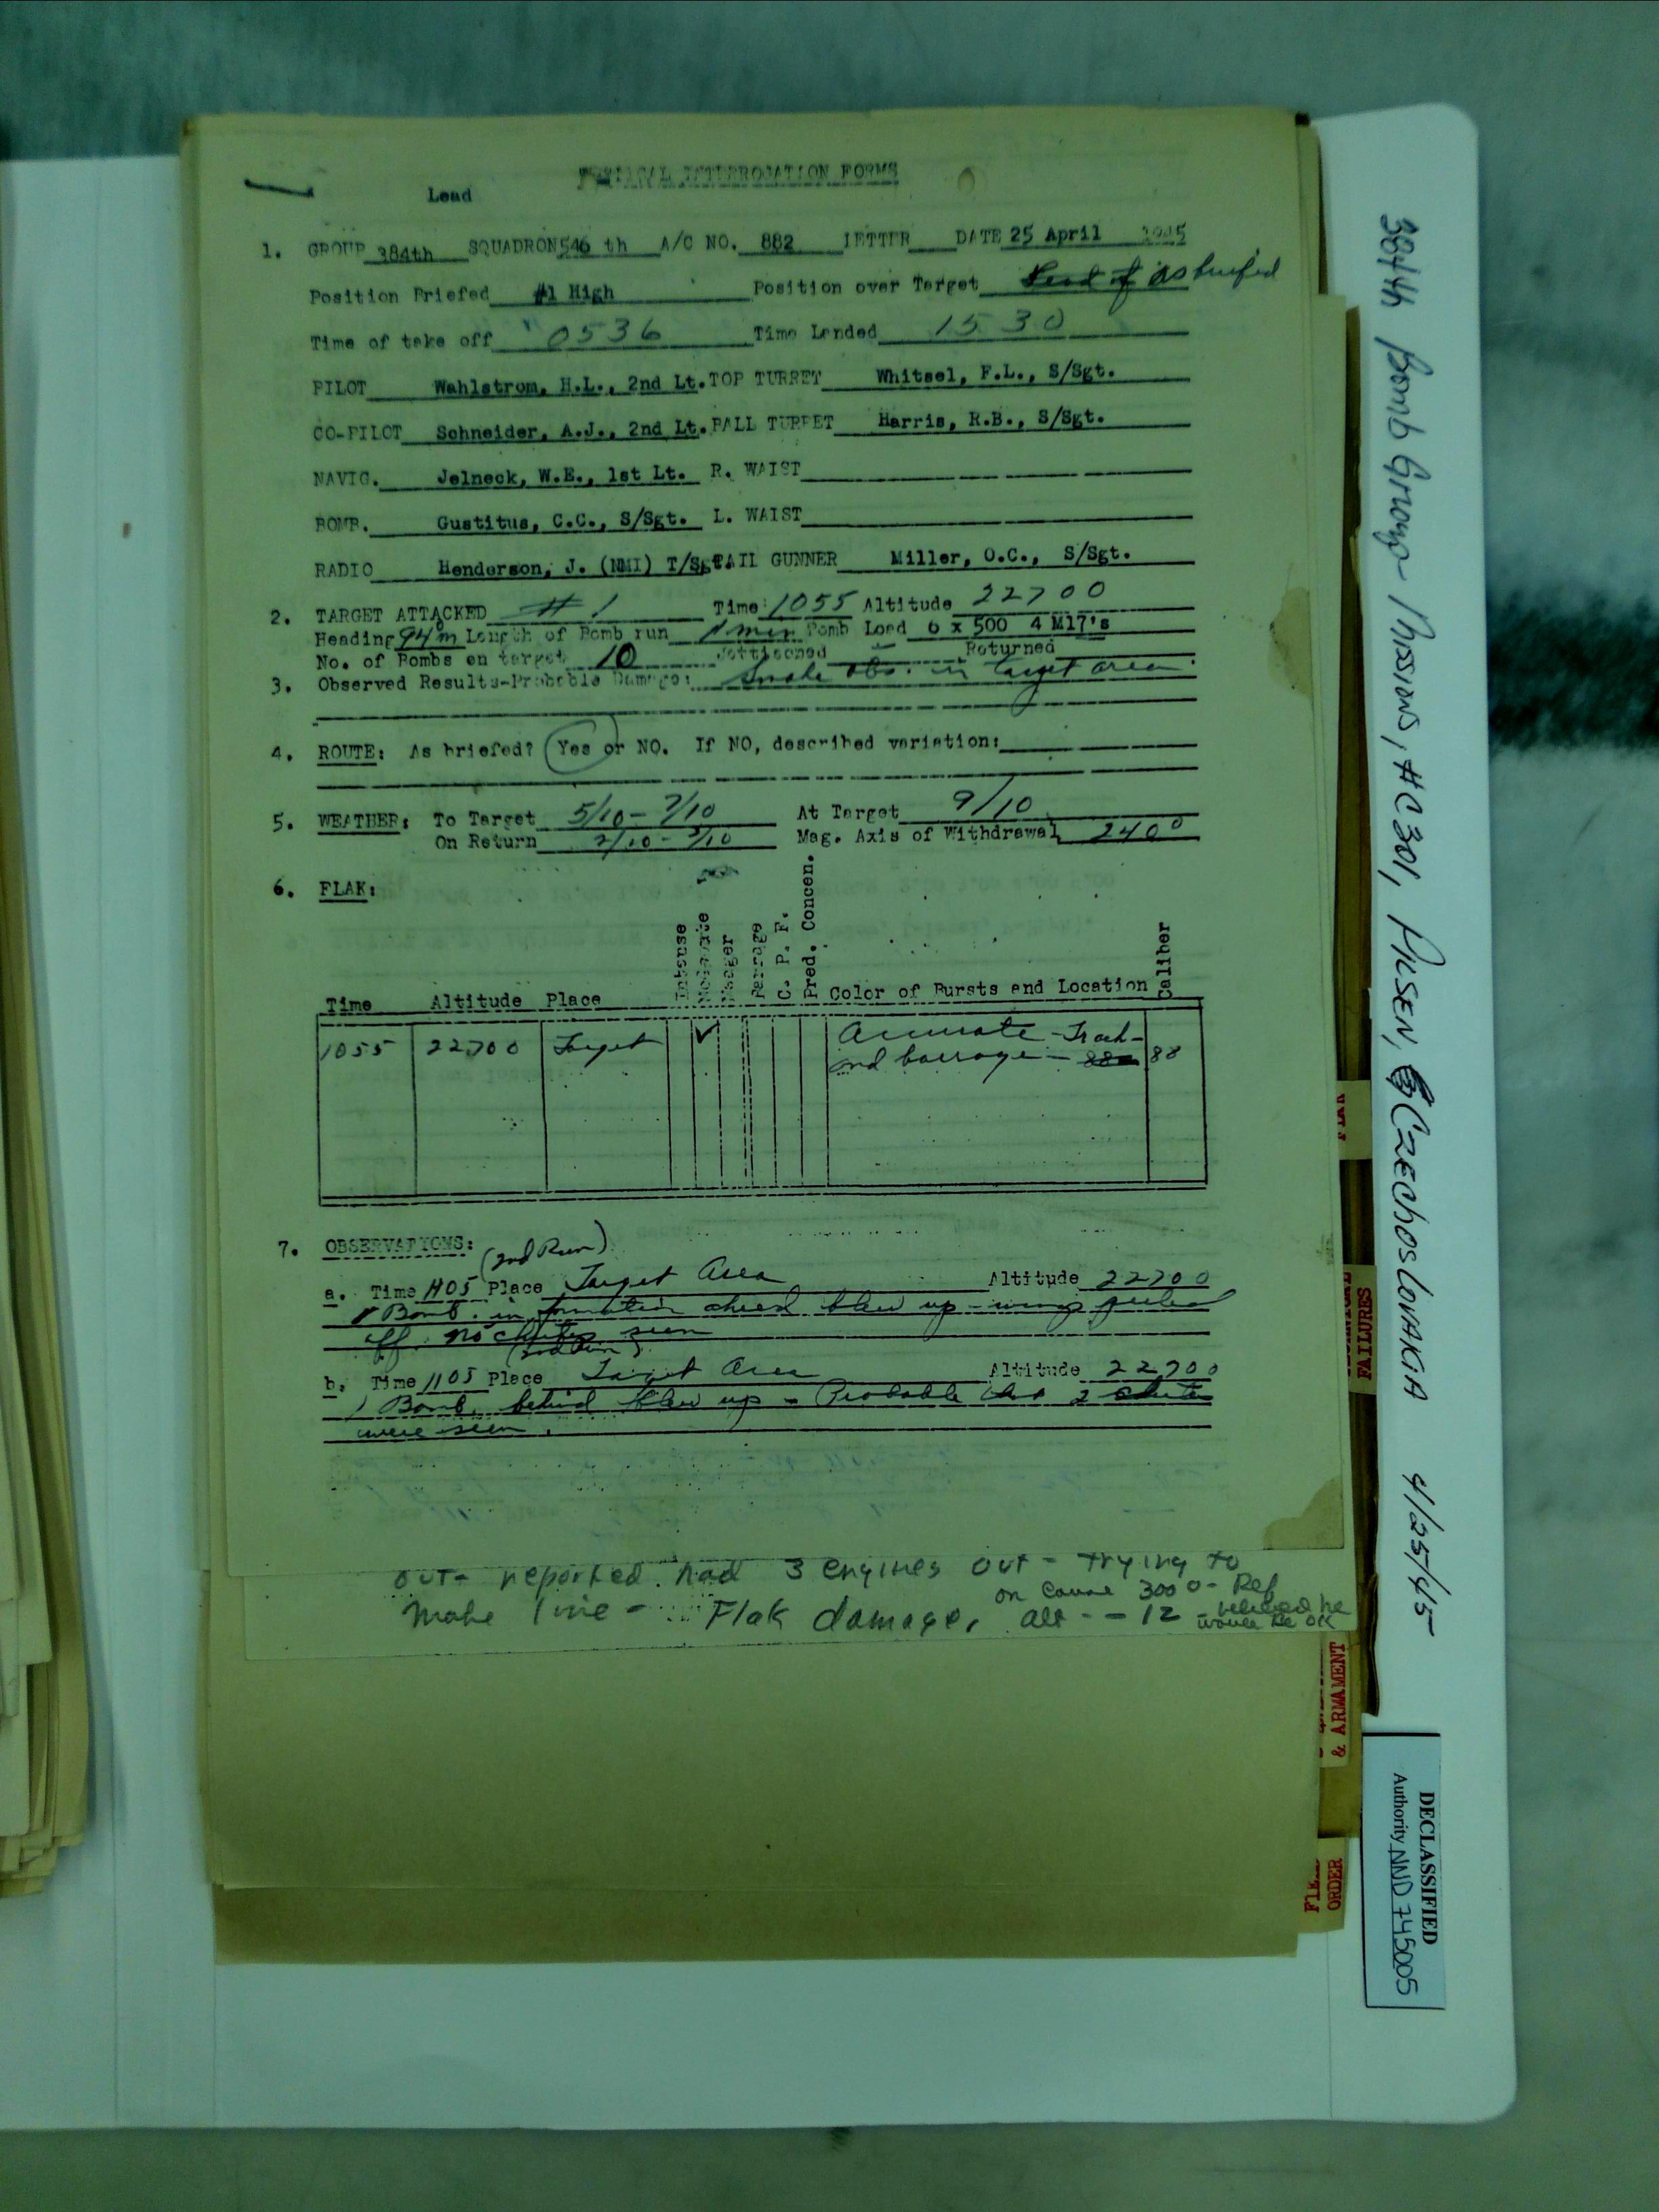 Lead
INTERROGATION FORMS
1. GROUP 384th SQUADRON 546 th A/C NO. 882 LETTER DATE 25 April 1945
Position Briefed #1 High Position over Target as briefed
Time of take off 0536 Time Landed 1530
PILOT Wahlstrom, H.L., 2nd Lt. TOP TURRET Whitsel, F.L., S/Sgt.
CO-PILOT Schneider, A.J., 2nd Lt. BALL TURRET Harris, R.B., S/Sgt.
NAVIG. Jelneck, W.E., 1st Lt. R. WAIST
BOMB. Gustitus, C.C., S/Sgt. L. WAIST
RADIO Henderson, J. (NMI) T/Sgt. TAIL GUNNER Miller, O.C., S/Sgt.
2. TARGET ATTACKED #1 Time 1055 Altitude 22700
Heading 94°m Length of Bomb run min Bomb Load 6 x 500 4 M17's
No. of Bombs on target 10 Jettisoned Returned
3. Observed Results-Probable Damage: Smoke obs. in target area
4. ROUTE: As briefed? Yes or NO. If NO, described variation:
5. WEATHER: To Target 5/10 - 7/10 At Target 9/10
On Return Mag. Axis of Withdrawal 240°
6. FLAK:
Time Altitude Place Intense Moderate Meager Barrage C. P. F. Pred. Concen. Color of Bursts and Location Caliber
1055 22700 Target ✓ Accurate - Track-
and barrage - 88
7. OBSERVATIONS:
(2nd Run)
a. Time 1105 Place Target Area Altitude 22700
1 Bomb. in formation ahead blew up - wings
off. no chutes seen
(2nd Run)
b. Time 1105 Place Target Area Altitude 22700
1 Bomb. behind blew up - Probable 2 chutes
were seen.
out - reported had 3 engines out - trying to
on course 300° - Ref
make line - Flak damage, alt - - 12 - believed he
would be OK
384th Bomb Group Missions, #C301, PILSEN, CZECHOSLOVAKIA 4/25/45
FLAK
FAILURES
& ARMAMENT
FIELD
ORDER
DECLASSIFIED
Authority NND 745005